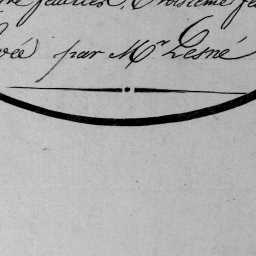 feuilles, Troisième
par Mr Lesné